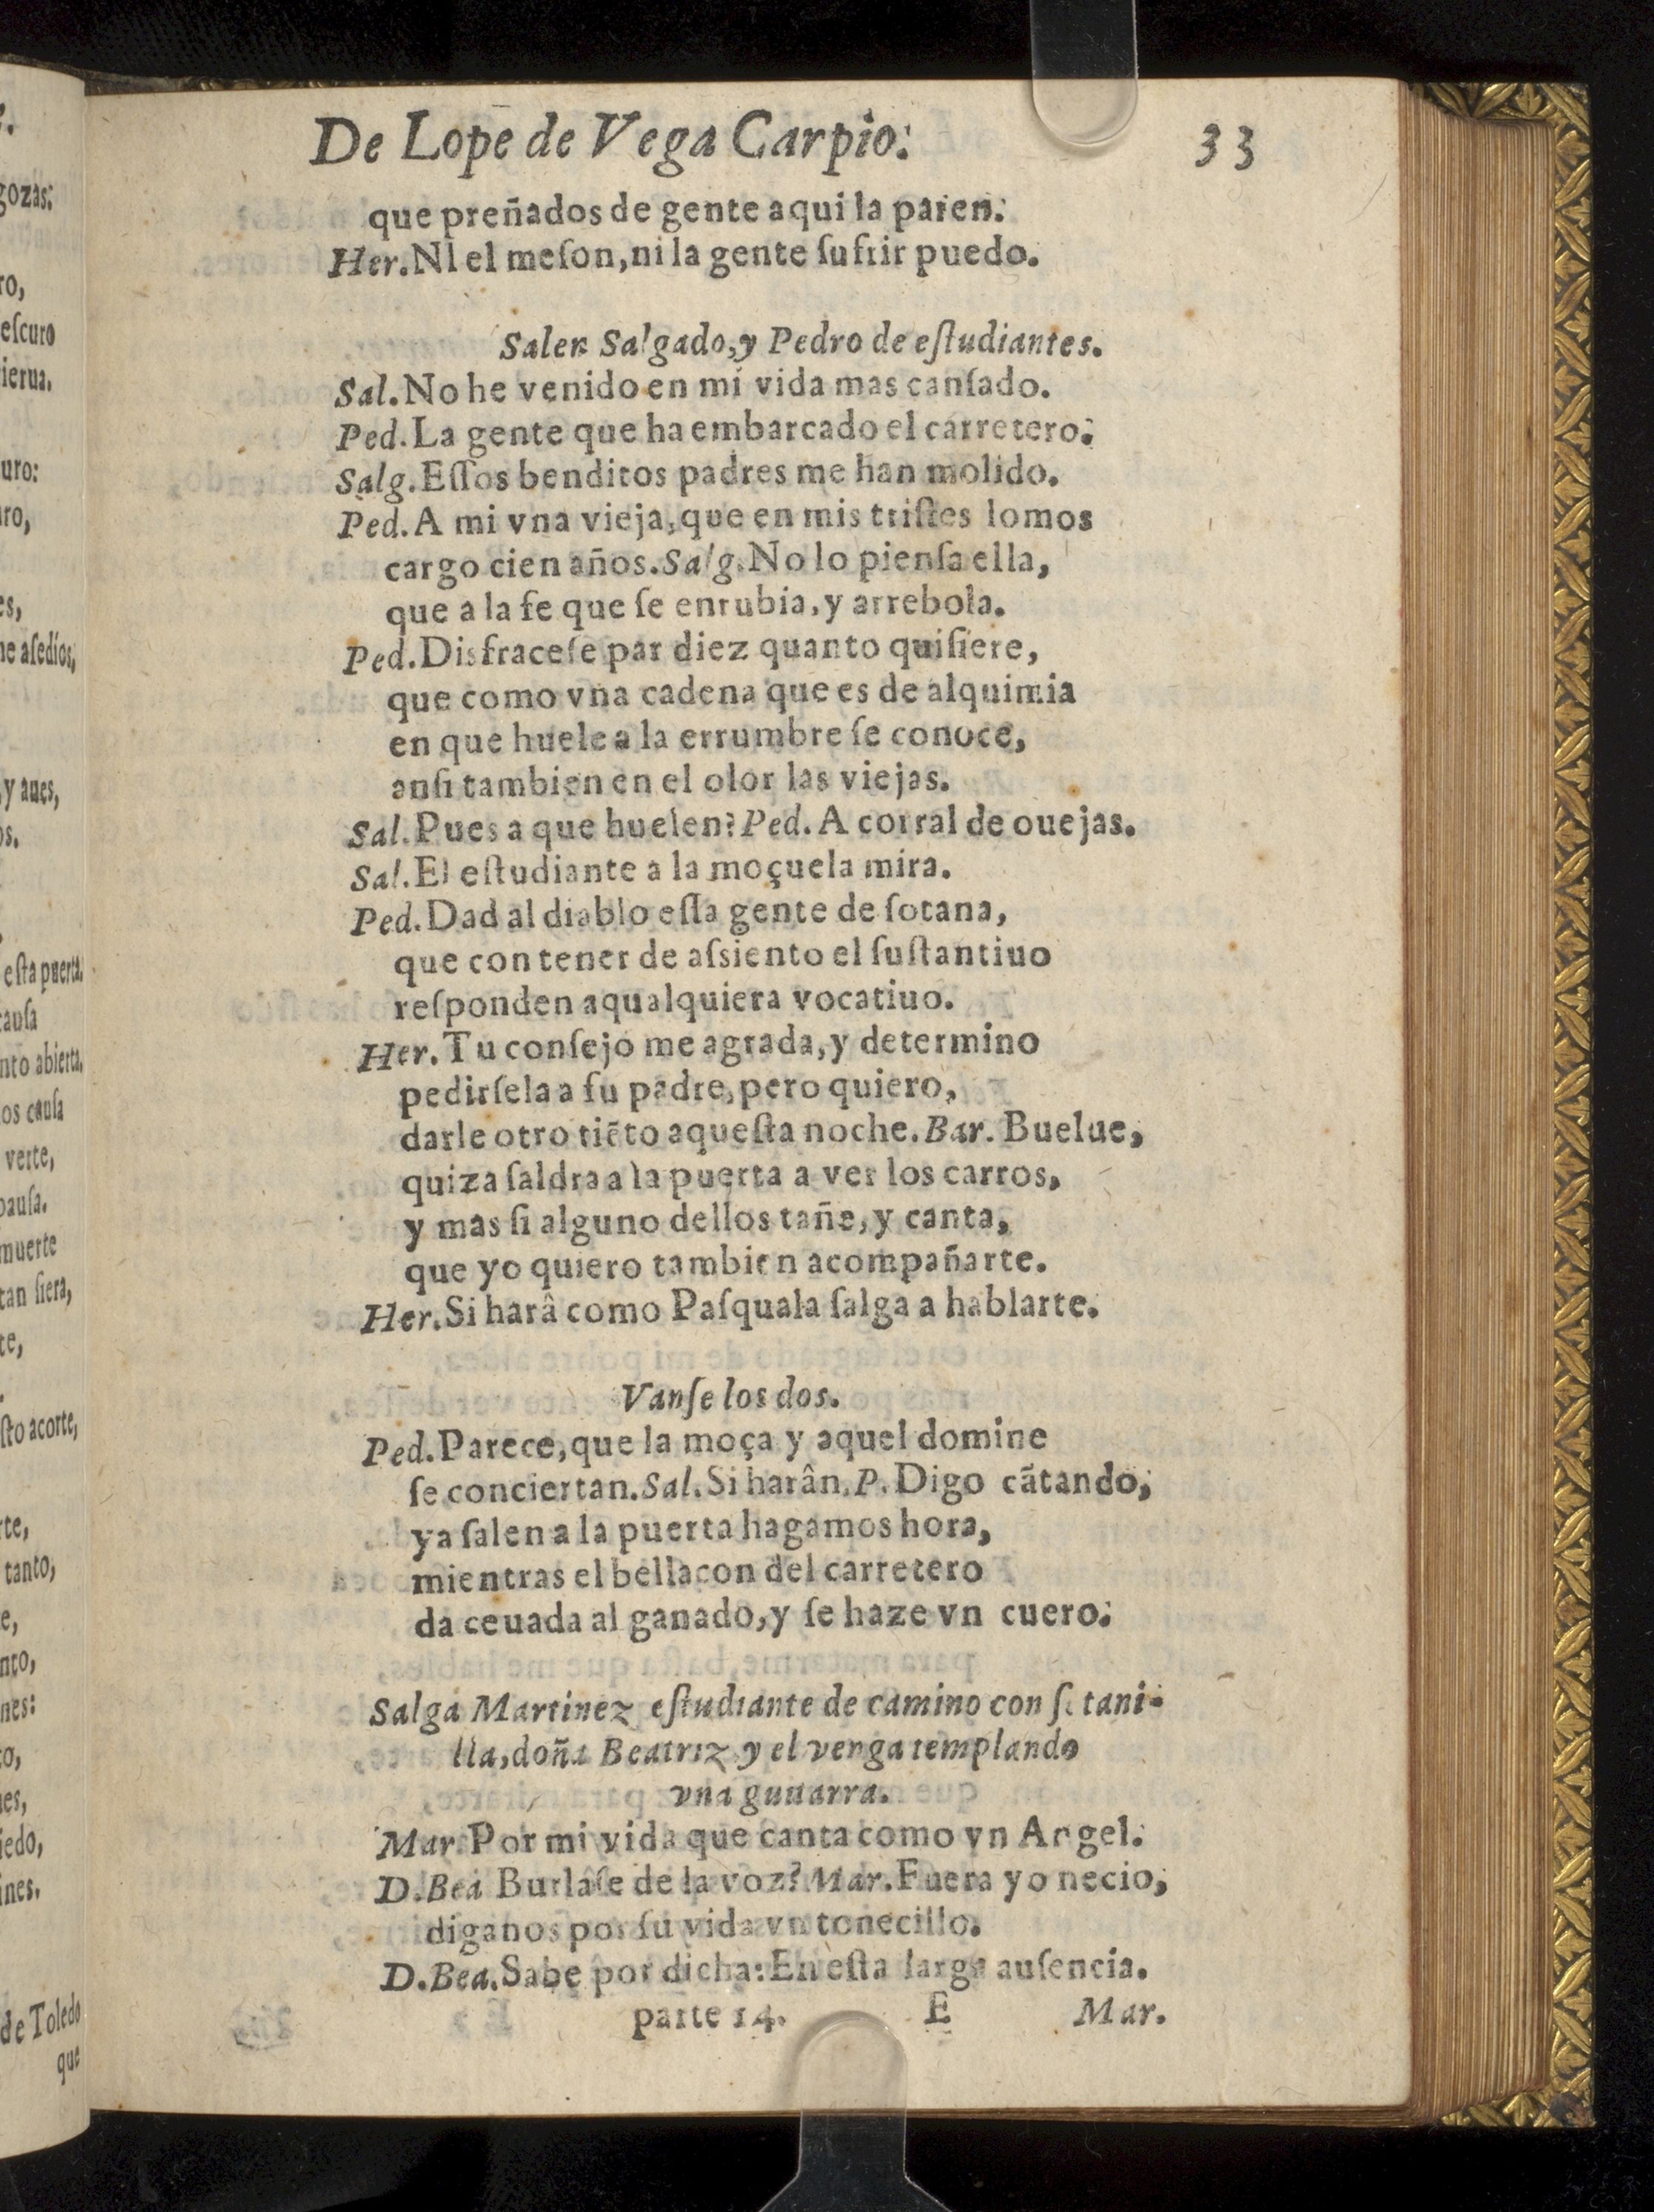 De Lope de Vega Carpio.
33
que preñados de gente aqui la paren.
Her. NI el meſon, ni la gente ſufrir puedo.
Salen Salgado, y Pedro de eſtudiantes.
Sal. No he venido en mi vida mas canſado.
Ped. La gente que ha embarcado el carretero.
Salg. Eſſos benditos padres me han molido.
Ped. A mi vna vieja, que en mis triſtes lomos
cargo cien años. Salg. No lo pienſa ella,
que a la fe que ſe enrubia, y arrebola.
Ped. Disfraceſe par diez quanto quiſiere,
que como vna cadena que es de alquimia
en que huele a la errumbre ſe conoce,
anſi tambien en el olor las viejas.
Sal. Pues a que huelen? Ped. A corral de ouejas.
Sal. El eſtudiante a la moçuela mira.
Ped. Dad al diablo eſſa gente de ſotana,
que con tener de aſsiento el ſuſtantiuo
reſponden aqualquiera vocatiuo.
Her. Tu conſejo me agrada, y determino
pedirſela a ſu padre, pero quiero,
darle otro tiẽto aqueſta noche. Bar. Buelue,
quiza ſaldra a la puerta a ver los carros,
y mas ſi alguno dellos tañe, y canta,
que yo quiero tambien acompañarte.
Her. Si harâ como Paſquala ſalga a hablarte.
Vanſe los dos.
Ped. Parece, que la moça y aquel domine
ſe conciertan. Sal. Si harân. P. Digo cãtando,
ya ſalen a la puerta hagamos hora,
mientras el bellacon del carretero
da ceuada al ganado, y ſe haze vn cuero.
Salga Martinez eſtudiante de camino con ſotani-
lla, doña Beatriz y el venga templando
vna guitarra.
Mar. Por mi vida que canta como vn Angel.
D.Bea Burlâſe de la voz? Mar. Fuera yo necio,
diganos por ſu vida vn tonecillo.
D.Bea. Sabe por dicha: En eſta larga auſencia.
parte 14. E Mar.
gozas:
ro,
eſcuro
ierua.
uro:
ro,
es,
ne aſedios,
y aues,
os.
eſta puerta.
cauſa
nto abierta,
os cauſa
verte,
pauſa.
muerte
tan fiera,
te,
ſto acorte,
rte,
tanto,
e,
nto,
nes:
to,
nes,
iedo,
ines.
de Toledo
que